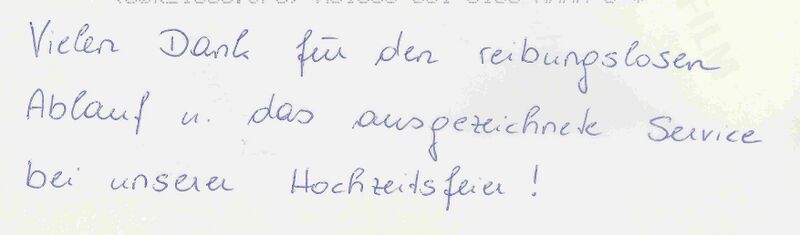 Vielen Dank für den reibungslosen
Ablauf u. das ausgezeichnete Service
bei unserer Hochzeitsfeier!